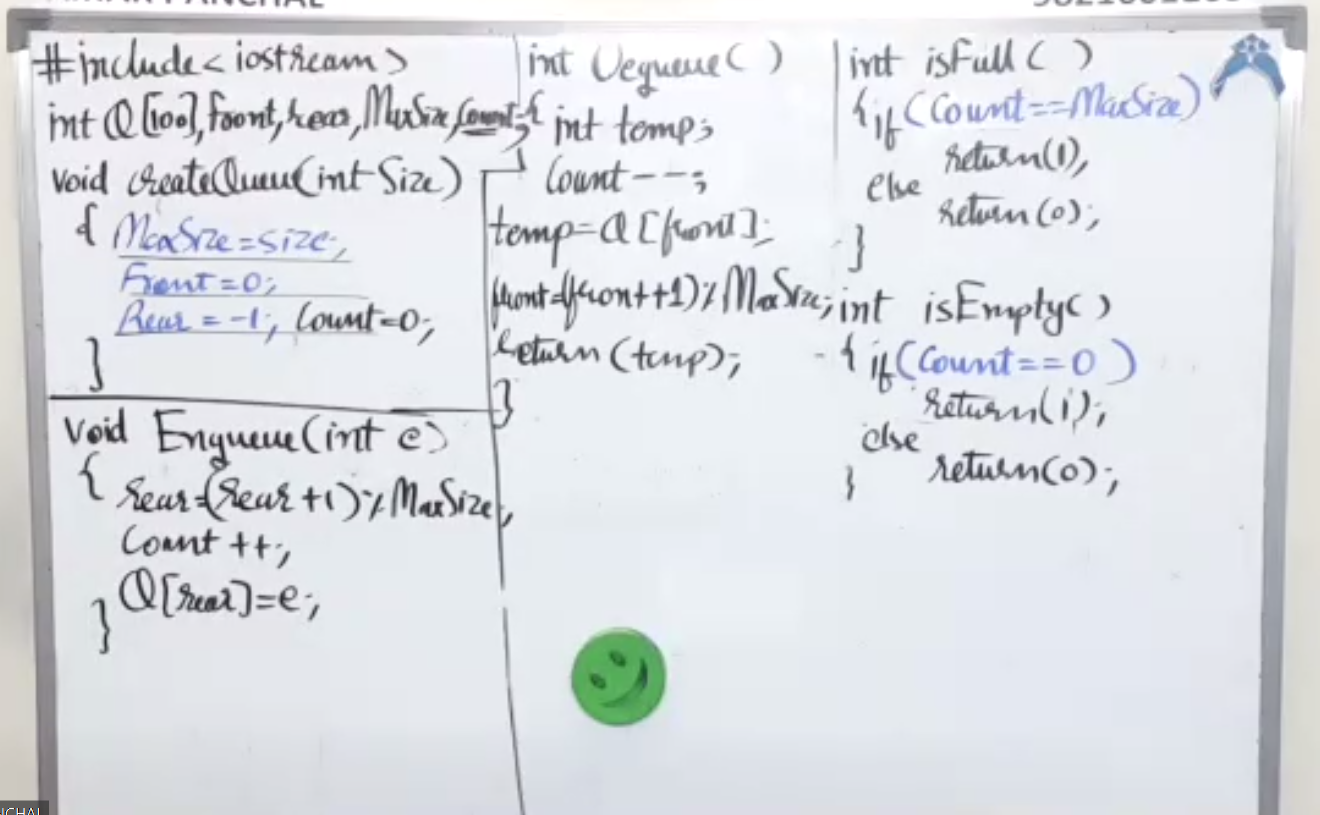 #include<iostream>
int Q[100],front,rear,MaxSize,Count;
void createQueue(int Size)
{ MaxSize=size;
Front=0;
Rear=-1; Count=0;
}
void Enqueue(int e)
{ rear=(rear+1)%MaxSize;
Count++;
Q[rear]=e;
}
int Dequeue()
{ int temp;
Count--;
temp=Q[front];
front=(front+1)%MaxSize;
return(temp);
}
int isFull()
{if(Count==MaxSize)
return(1);
else
return(0);
}
int isEmpty()
{if(Count==0)
return(1);
else
return(0);
}